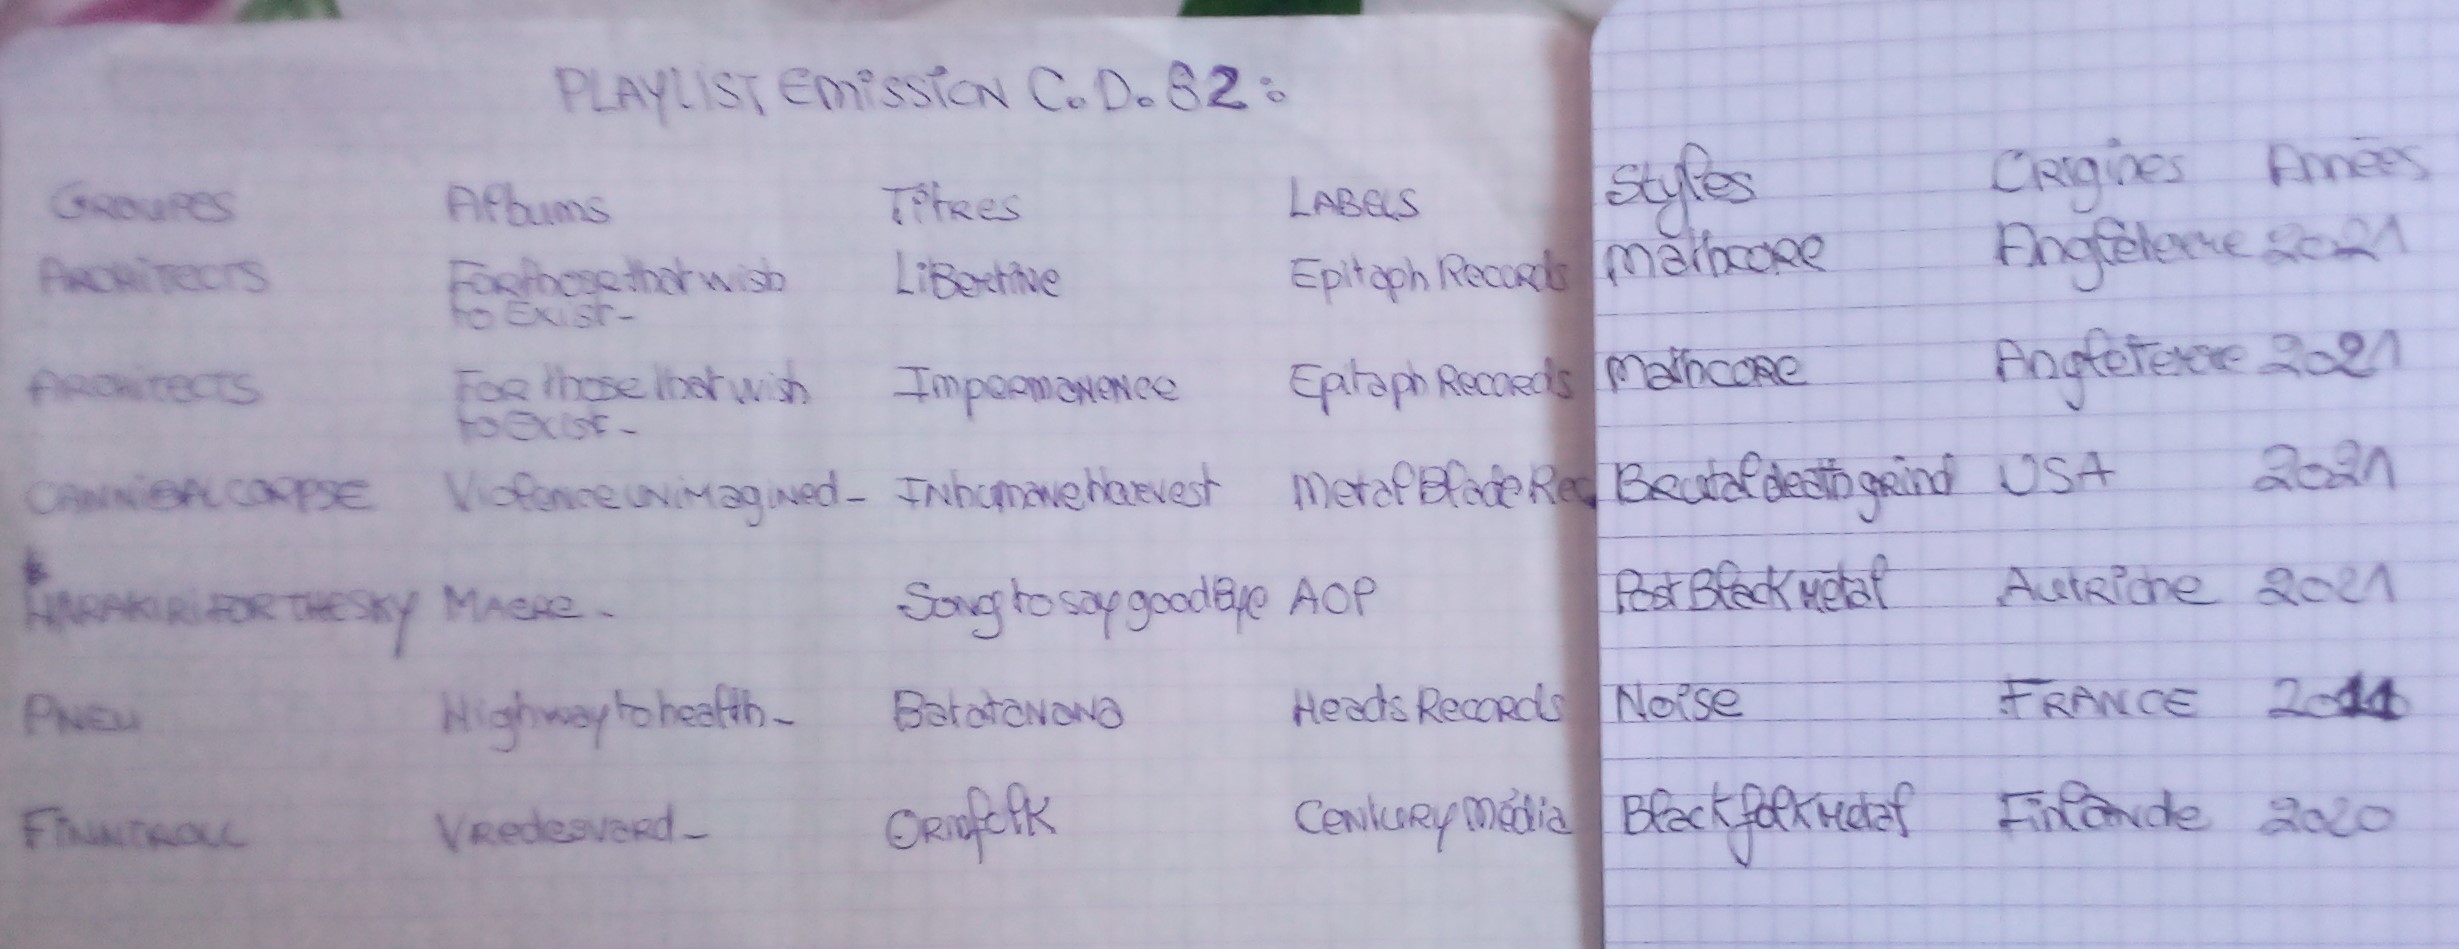 PLAYLIST EMISSION C.D.82:
GROUPES Albums Titres LABELS Styles Origines Années
ARCHITECTS For those that wish Libertine Epitaph Records Mathcore Angleterre 2021
to Exist-
ARCHITECTS For those that wish Impermanence Epitaph Records Mathcore Angleterre 2021
to Exist-
CANNIBAL CORPSE Violence unimagined- Inhumane harvest Metal Blade Rec Brutal death grind USA 2021
HARAKIRI FOR THE SKY Maere- Song to say goodbye AOP Post Black Metal Autriche 2021
PNEU Highway to health- Batatanana Heads Records Noise FRANCE 2011
FINNTROLL Vredesvard- Ormfolk Century Média Black folk Metal Finlande 2020